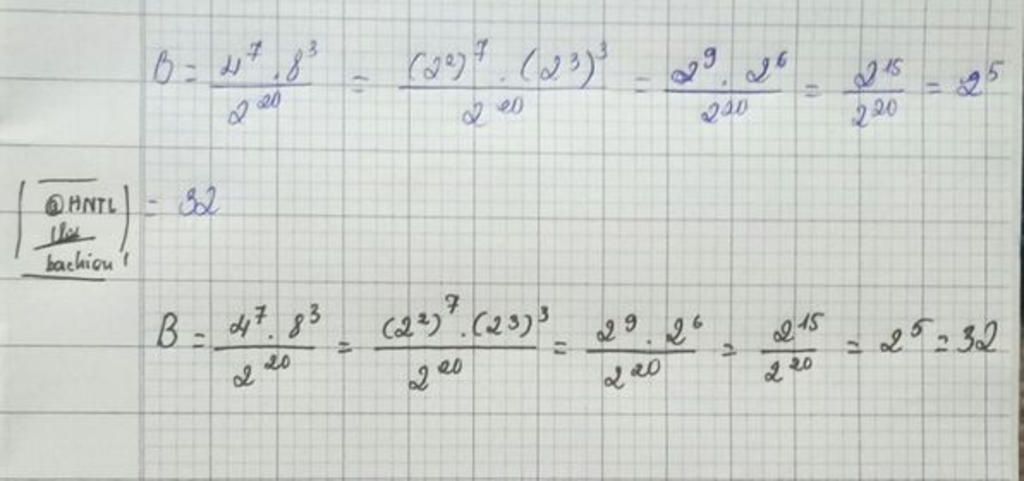 B = \frac{4^7 . 8^3}{2^{20}} = \frac{(2^2)^7 . (2^3)^3}{2^{20}} = \frac{2^9 . 2^6}{2^{20}} = \frac{2^{15}}{2^{20}} = 2^5
@HNTL
= 32
bachiou
B = \frac{4^7 . 8^3}{2^{20}} = \frac{(2^2)^7 . (2^3)^3}{2^{20}} = \frac{2^9 . 2^6}{2^{20}} = \frac{2^{15}}{2^{20}} = 2^5 = 32